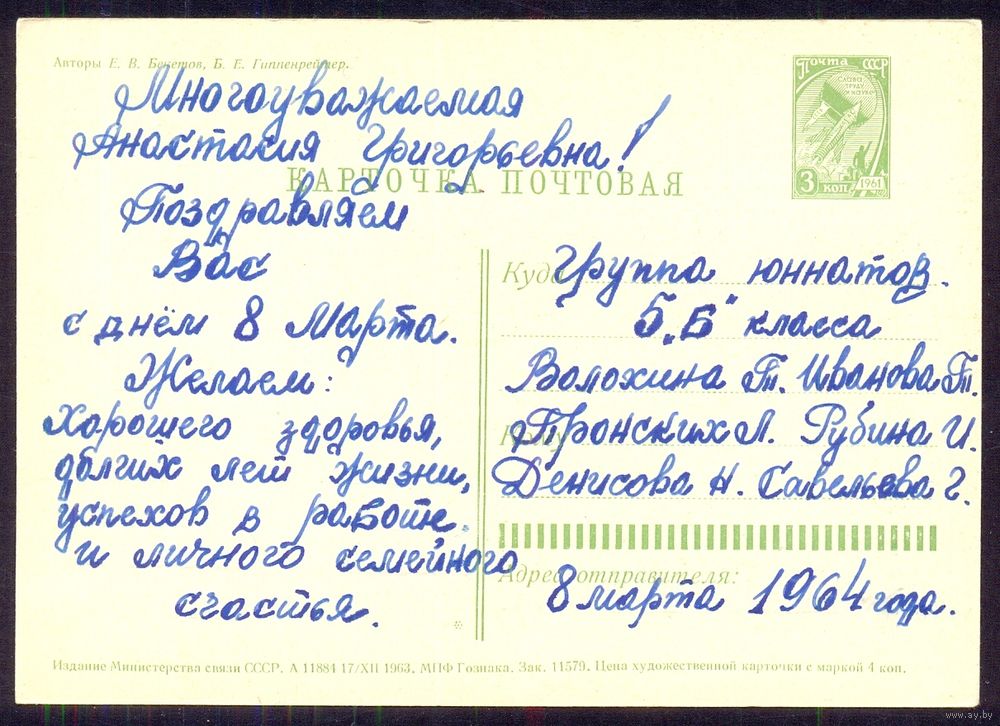 Авторы Е. В. Бекетов, Б. Е. Гиппенрейтер.
Многоуважаемая
Анастасия Григорьевна!
Поздравляем
Вас
с днём 8 Марта.
Желаем:
хорошего здоровья,
долгих лет жизни,
успехов в работе.
и личного семейного
счастья.
Почта СССР
СЛАВА
ТРУДУ
И НАУКЕ
3 коп 1961
КАРТОЧКА ПОЧТОВАЯ
Куда Группа юннатов.
5„Б" класса
Волохина Т. Иванова Т.
Кому Пронских Л. Рубина И.
Денисова Н. Савельева Г.
Адрес отправителя:
8 марта 1964 года.
Издание Министерства связи СССР. А 11884 17/XII 1963. МПФ Гознака. Зак. 11579. Цена художественной карточки с маркой 4 коп.
www.ay.by